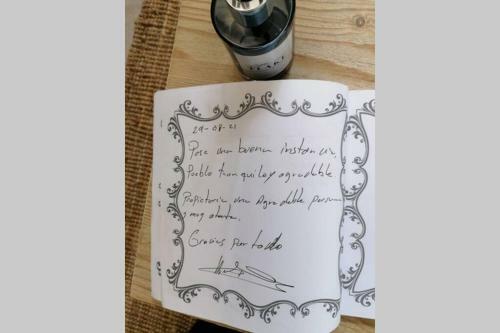 29-08-21
Pase una buena instancia,
Pueblo tranquilo y agradable
Propietaria una Agradable persona
y muy atenta.
Gracias por todo